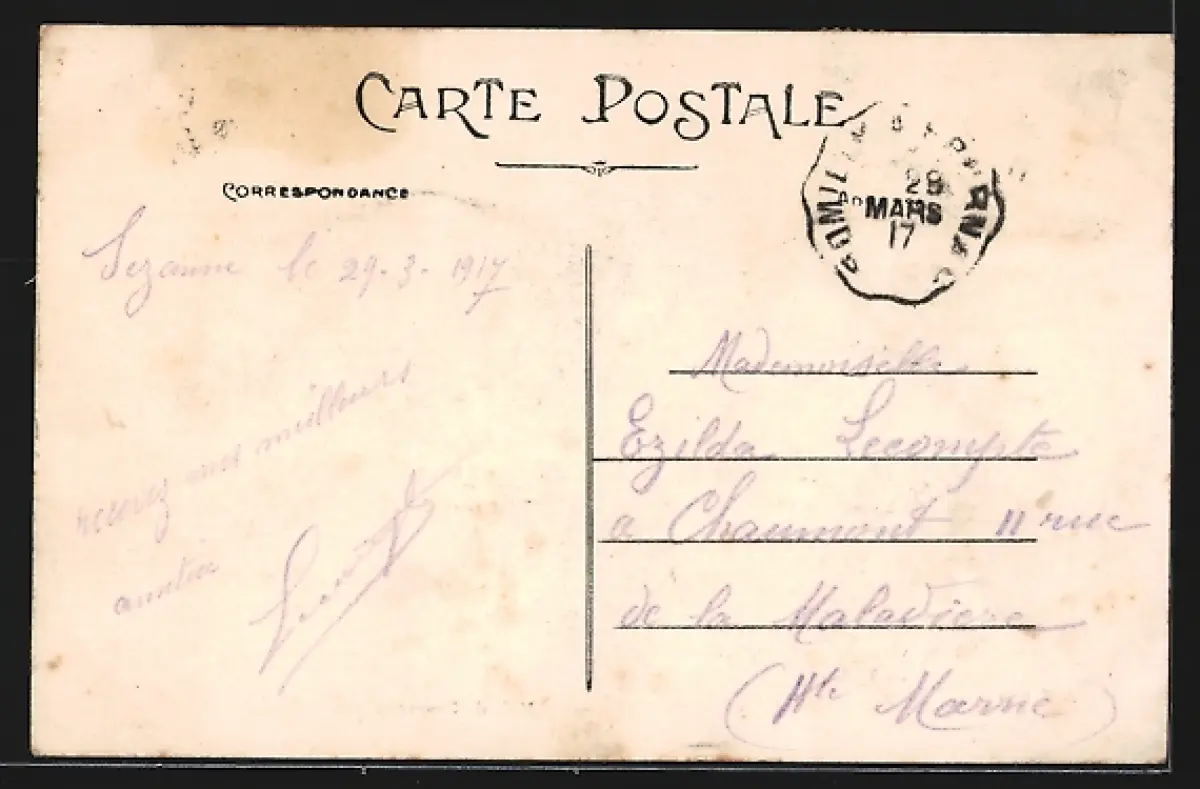 CARTE POSTALE
CORRESPONDANCE
29
MARS
17
Sezanne le 29-3-1917
recevez mes meilleurs
amitié
Mademoiselle
Ezilda Lecompte
a Chaumont 11 rue
de la Maladiere
(Hte Marne)